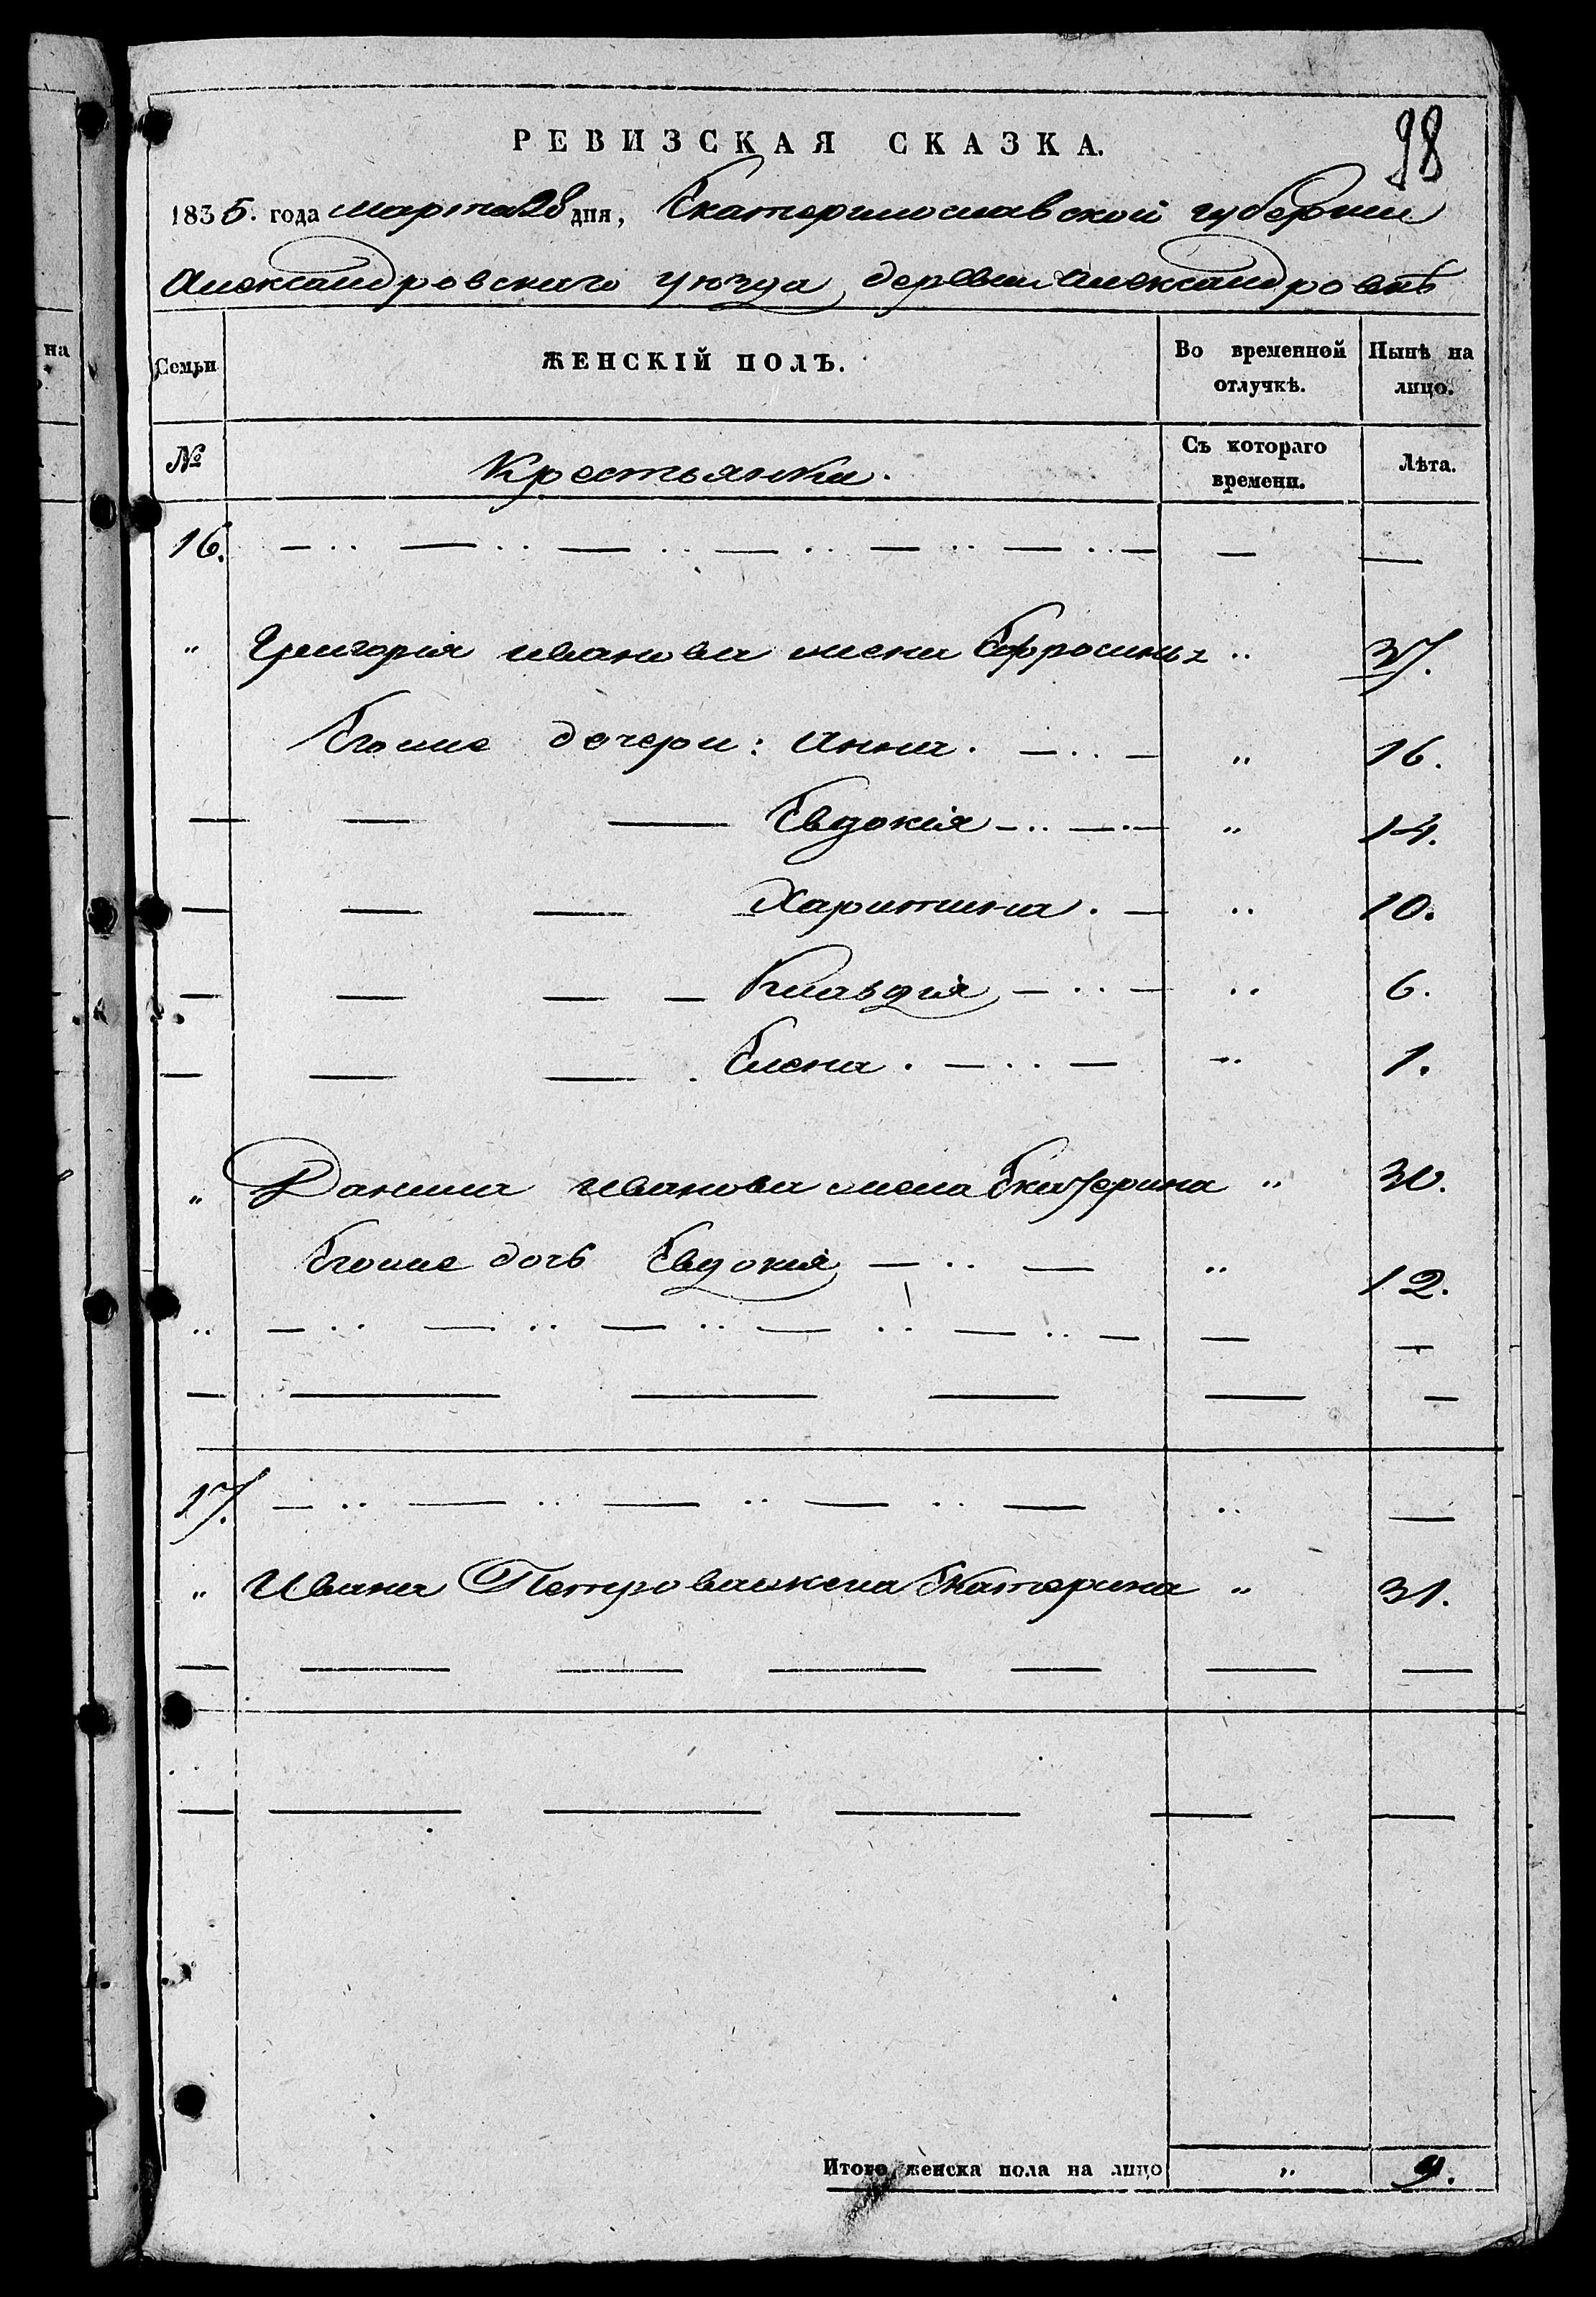 98
РЕВИЗСКАЯ СКАЗКА.
1835. года марта 28 дня, Екатеринославской губернии
Александровскаго уюзда, деревни Александровкѣ
Семьи
ЖЕНСКІЙ ПОЛЪ.
Во временной отлучкѣ.
Нынѣ на лицо.
№
Крестьянки.
Съ котораго времени.
Лѣта.
на
16. — .. — .. — .. — .. — .. — .. — — —
" Григорія иванова жена Ефросинья .. 37.
Егоже дочери: Анна. — .. — " 16.
— — — Евдокія — .. — . — " 14.
— — — Харитина. — .. 10.
— — — — Клавдія — .. — .. 6.
— — — . Елена. — .. — .. 1.
" Данила иванова жена Екатерина " 30.
Егоже дочь Евдокия — .. — .. 12.
.. — .. — .. — .. — .. — .. — — —
— — — — — —
17. — .. — .. — .. — .. — .. —
" Ивана Петрова жена Екатерина " 31.
— — — — — — —
— — — — — —
Итого женска пола на лицо " 9.